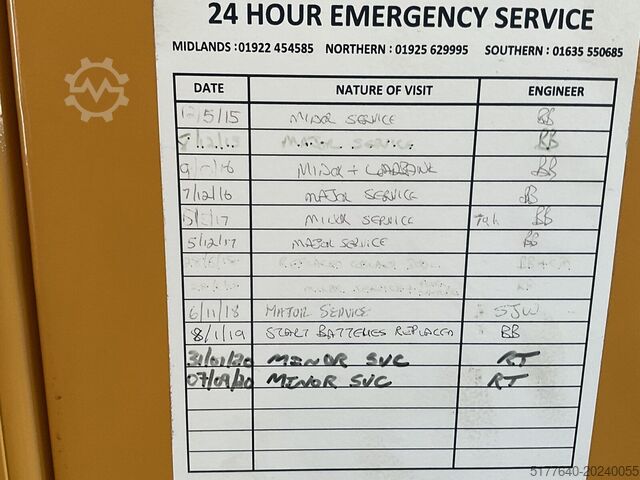 24 HOUR EMERGENCY SERVICE
MIDLANDS :01922 454585 NORTHERN : 01925 629995 SOUTHERN : 01635 550685
DATE NATURE OF VISIT ENGINEER
12/5/15 MINOR SERVICE BB
MAJOR SERVICE BB
MINOR + LOADBANK BB
7/12/16 MAJOR SERVICE BB
MINOR SERVICE BB
5/12/17 MAJOR SERVICE BB
6/11/18 MAJOR SERVICE SJW
8/1/19 START BATTERIES REPLACED BB
31/01/20 MINOR SVC RT
07/09/20 MINOR SVC RT
5177640-20240055